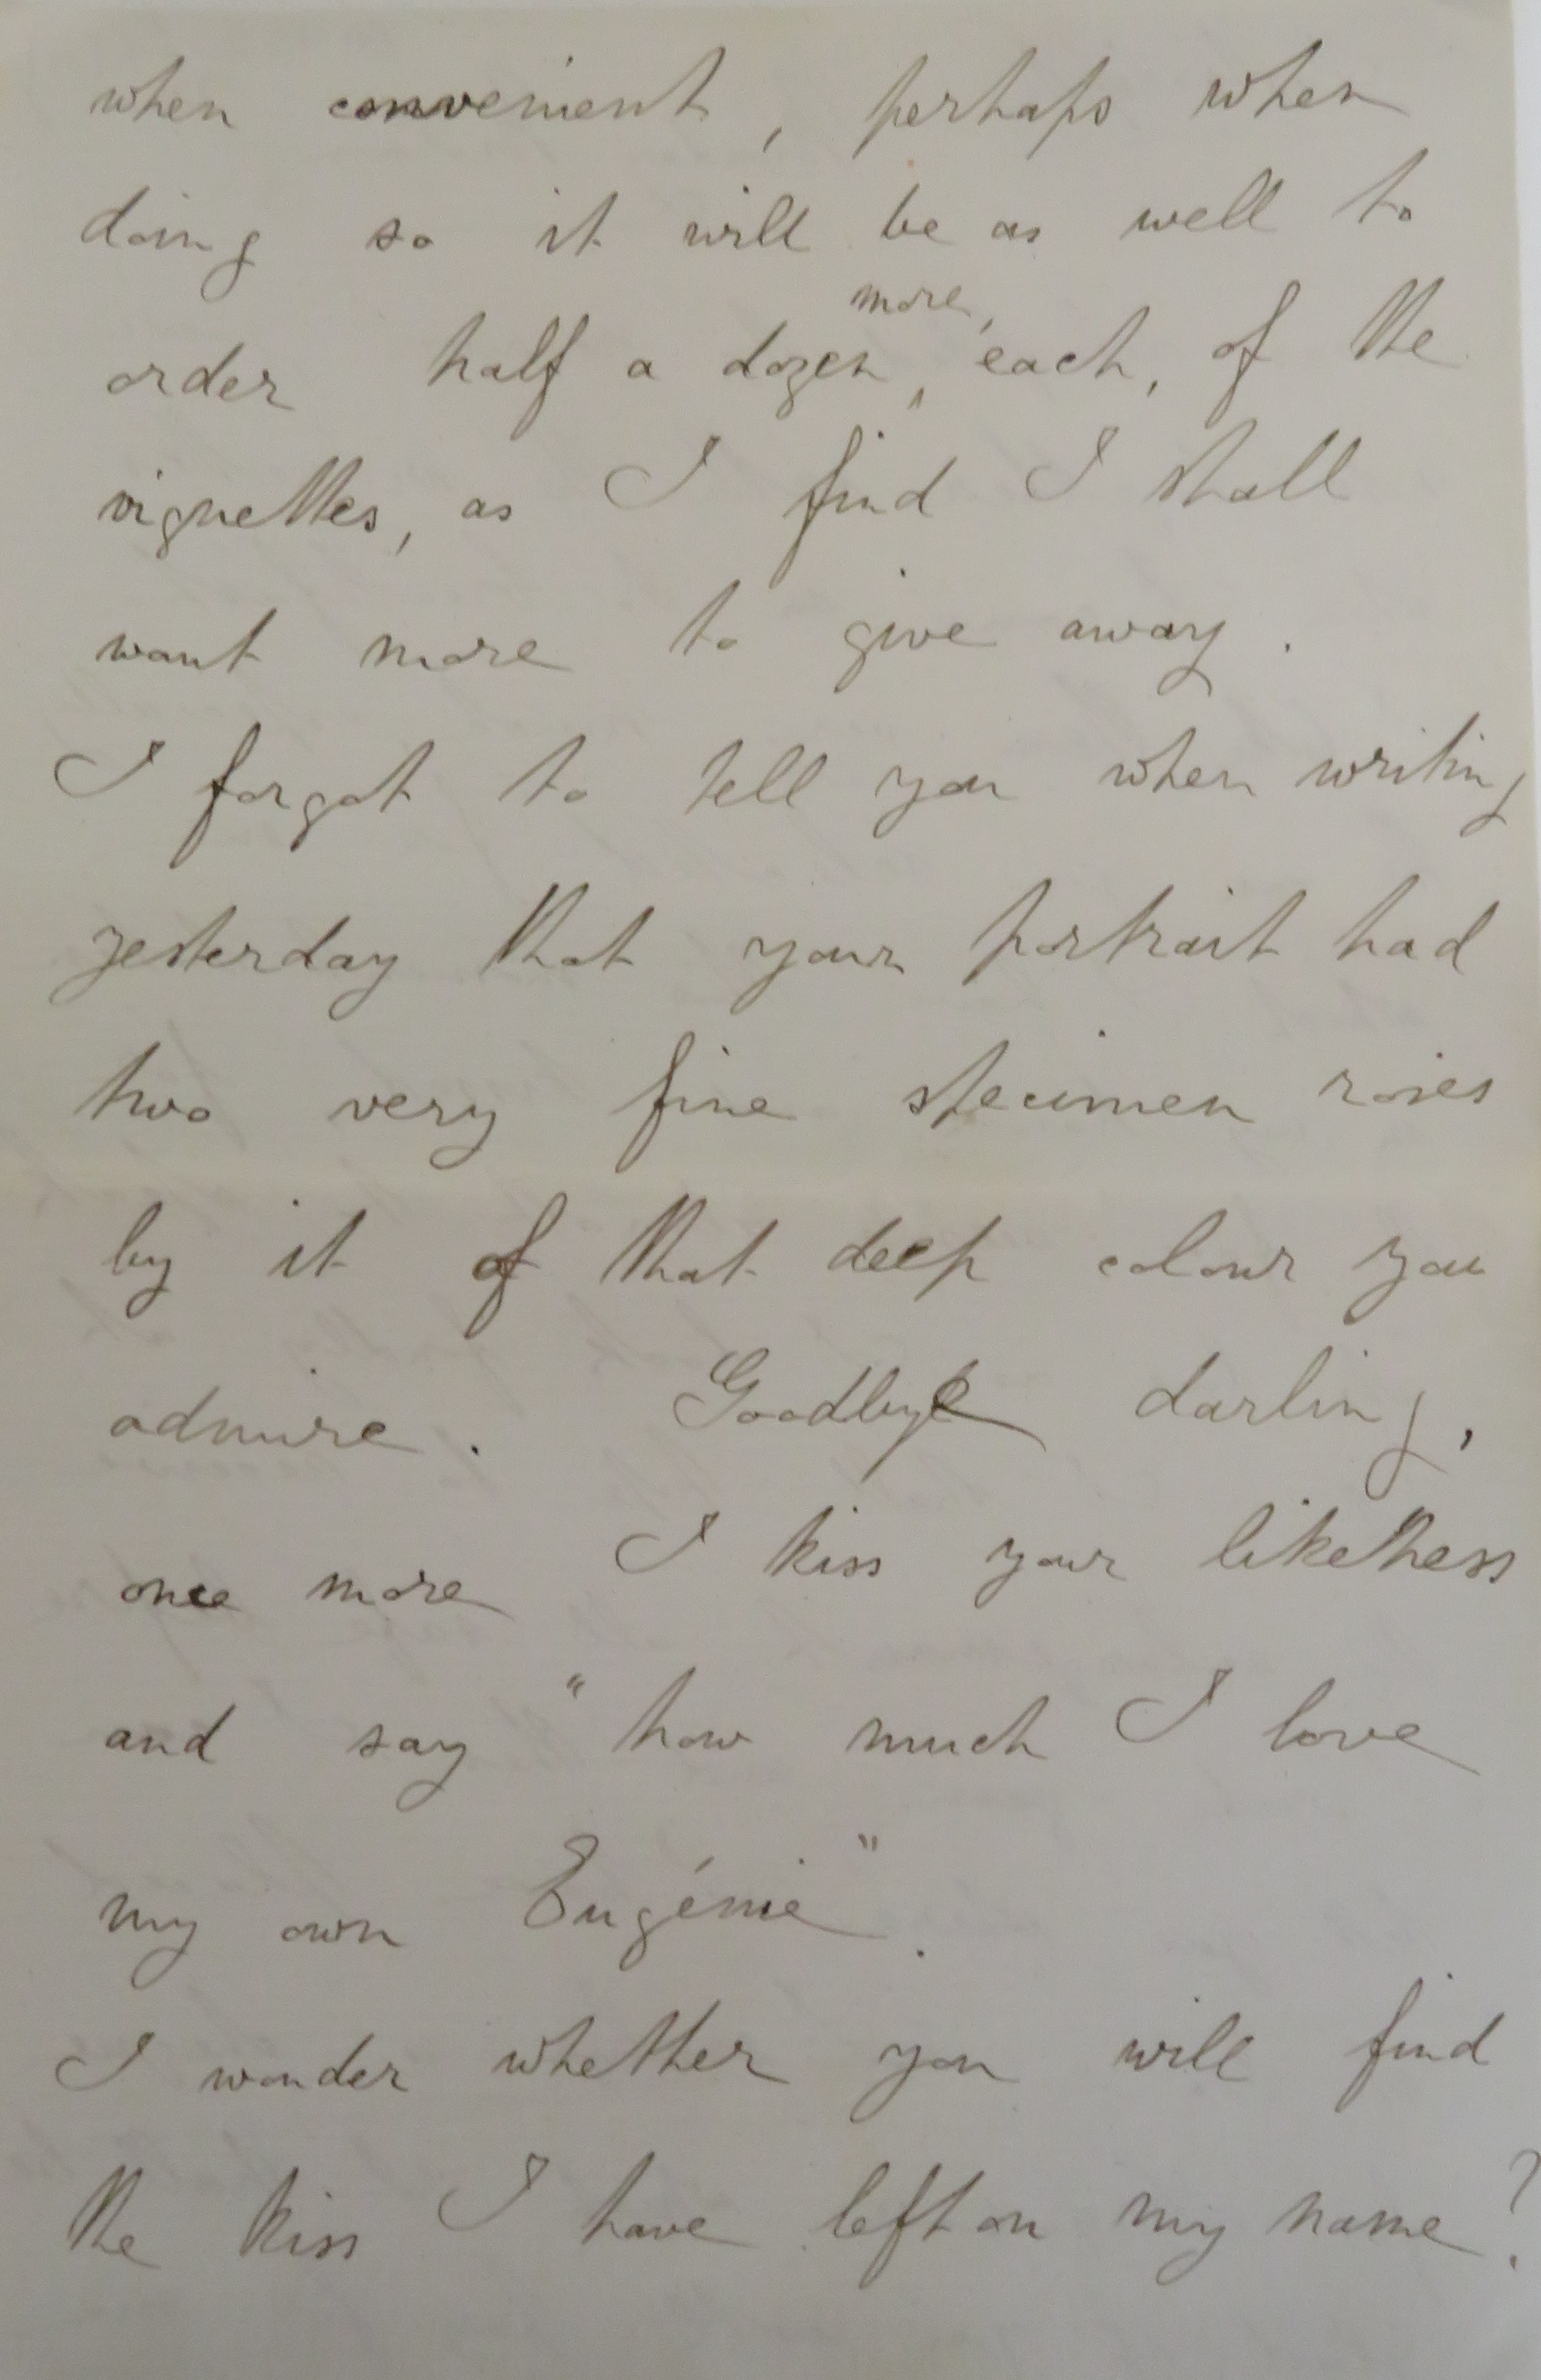 when convenient, perhaps when
doing so it will be as well to
more,
order half a dozen, each, of the
vignettes, as I find I shall
want more to give away.
I forgot to tell you when writing
yesterday that your portrait had
two very fine specimen roses
by it of that deep colour you
admire. Goodbye darling,
once more I kiss your likeness
and say "how much I love
my own Eugénie".
I wonder whether you will find
the kiss I have left on my name?